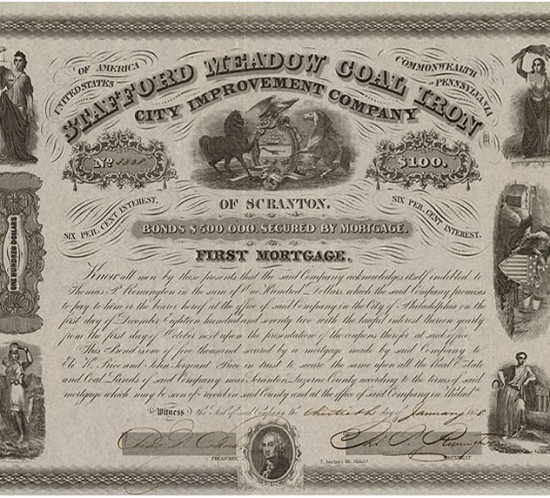 UNITED STATES OF AMERICA
COMMONWEALTH OF PENNSYLVANIA
STAFFORD MEADOW COAL IRON
CITY IMPROVEMENT COMPANY
No.
$100.
SIX PER. CENT INTEREST.
OF SCRANTON.
SIX PER. CENT INTEREST.
BONDS $500,000, SECURED BY MORTGAGE.
FIRST MORTGAGE.
ONE HUNDRED DOLLARS
Know all men by these presents that the said Company acknowledges itself indebted to
Thomas P. Remington in the sum of One Hundred Dollars, which the said Company promises
to pay to him or the bearer hereof at the office of said Company in the City of Philadelphia on the
first day of December Eighteen hundred and seventy two with the lawful interest thereon yearly
from the first day of October next upon the presentation of the coupons therefor at said office.
This Bond is one of five thousand secured by a mortgage made by said Company to
Eli K. Price and John Sergeant Price in trust to secure the same upon all the Real Estate
and Coal Lands of said Company near Scranton, Luzerne County according to the terms of said
mortgage which may be seen of record in said County and at the office of said Company in Philad.
Witness the Seal of said Company the thirtieth day of January 1858.
TREASURER
PRESIDENT